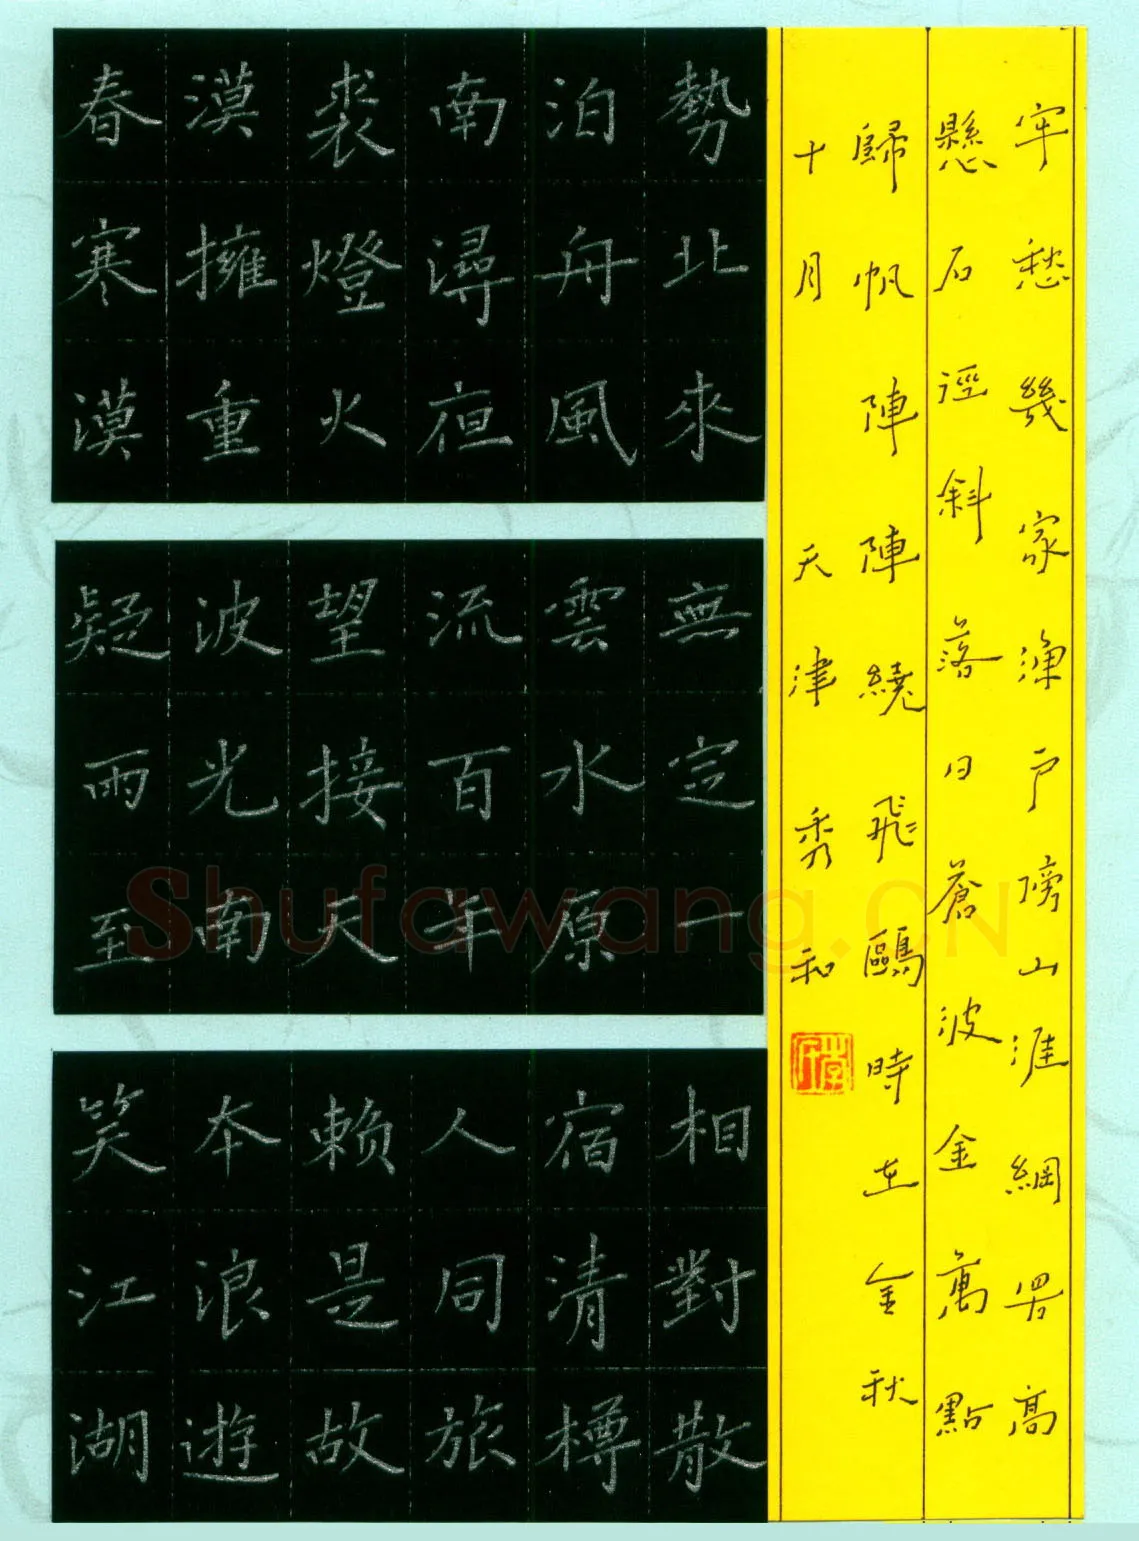 春寒漠
漠擁重
裘燈火
南潯夜
泊舟風
勢北來
疑雨至
波光南
望接天
流百年
雲水原
無定一
笑江湖
本浪遊
賴是故
人同旅
宿清樽
相對散
牢愁幾家漁戶傍山涯網罟高
懸石徑斜落日蒼波金萬點
歸帆陣陣繞飛鷗時在金秋
十月天津秀和
Shufawang.CN